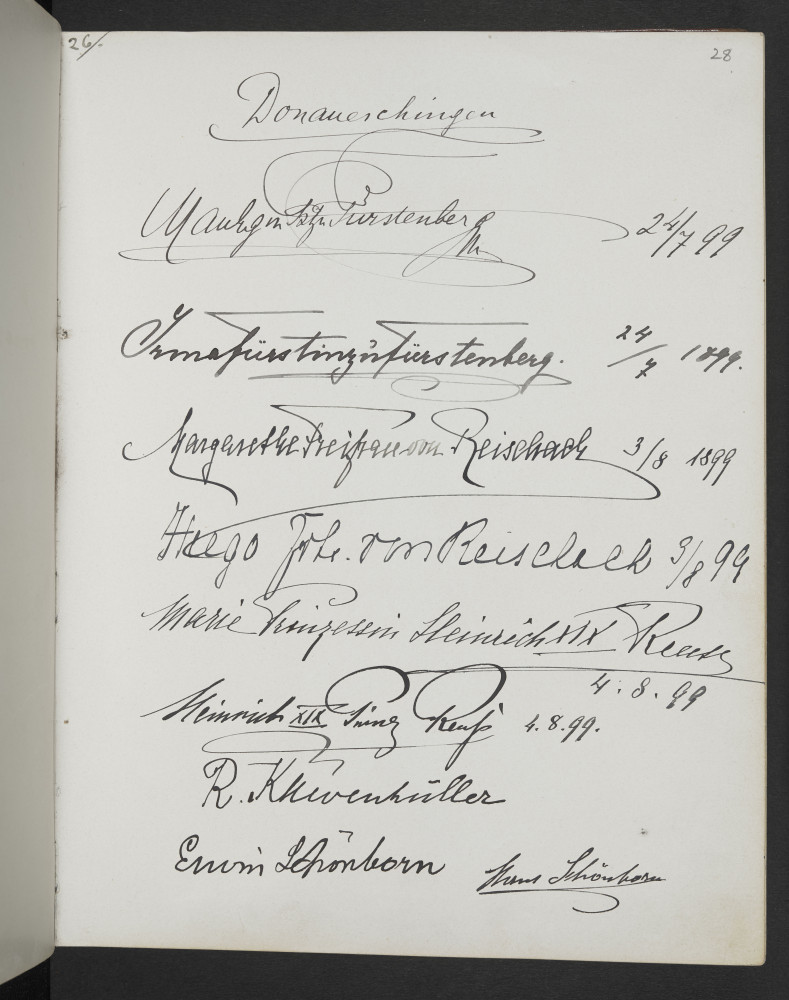 26/.
28
Donaueschingen
Fürstenberg 24/7 99
Irma Fürstin zu Fürstenberg. 24/7 1899.
Margarethe Freifrau von Reischach 3/8 1899
Hugo Frh. von Reischach 3/8 99
Marie Prinzessin Heinrich XIX Reuss
4.8.99
Heinrich XIX Prinz Reuß 4.8.99.
R. Khevenhüller
Erwin Schönborn
Hans Schönborn